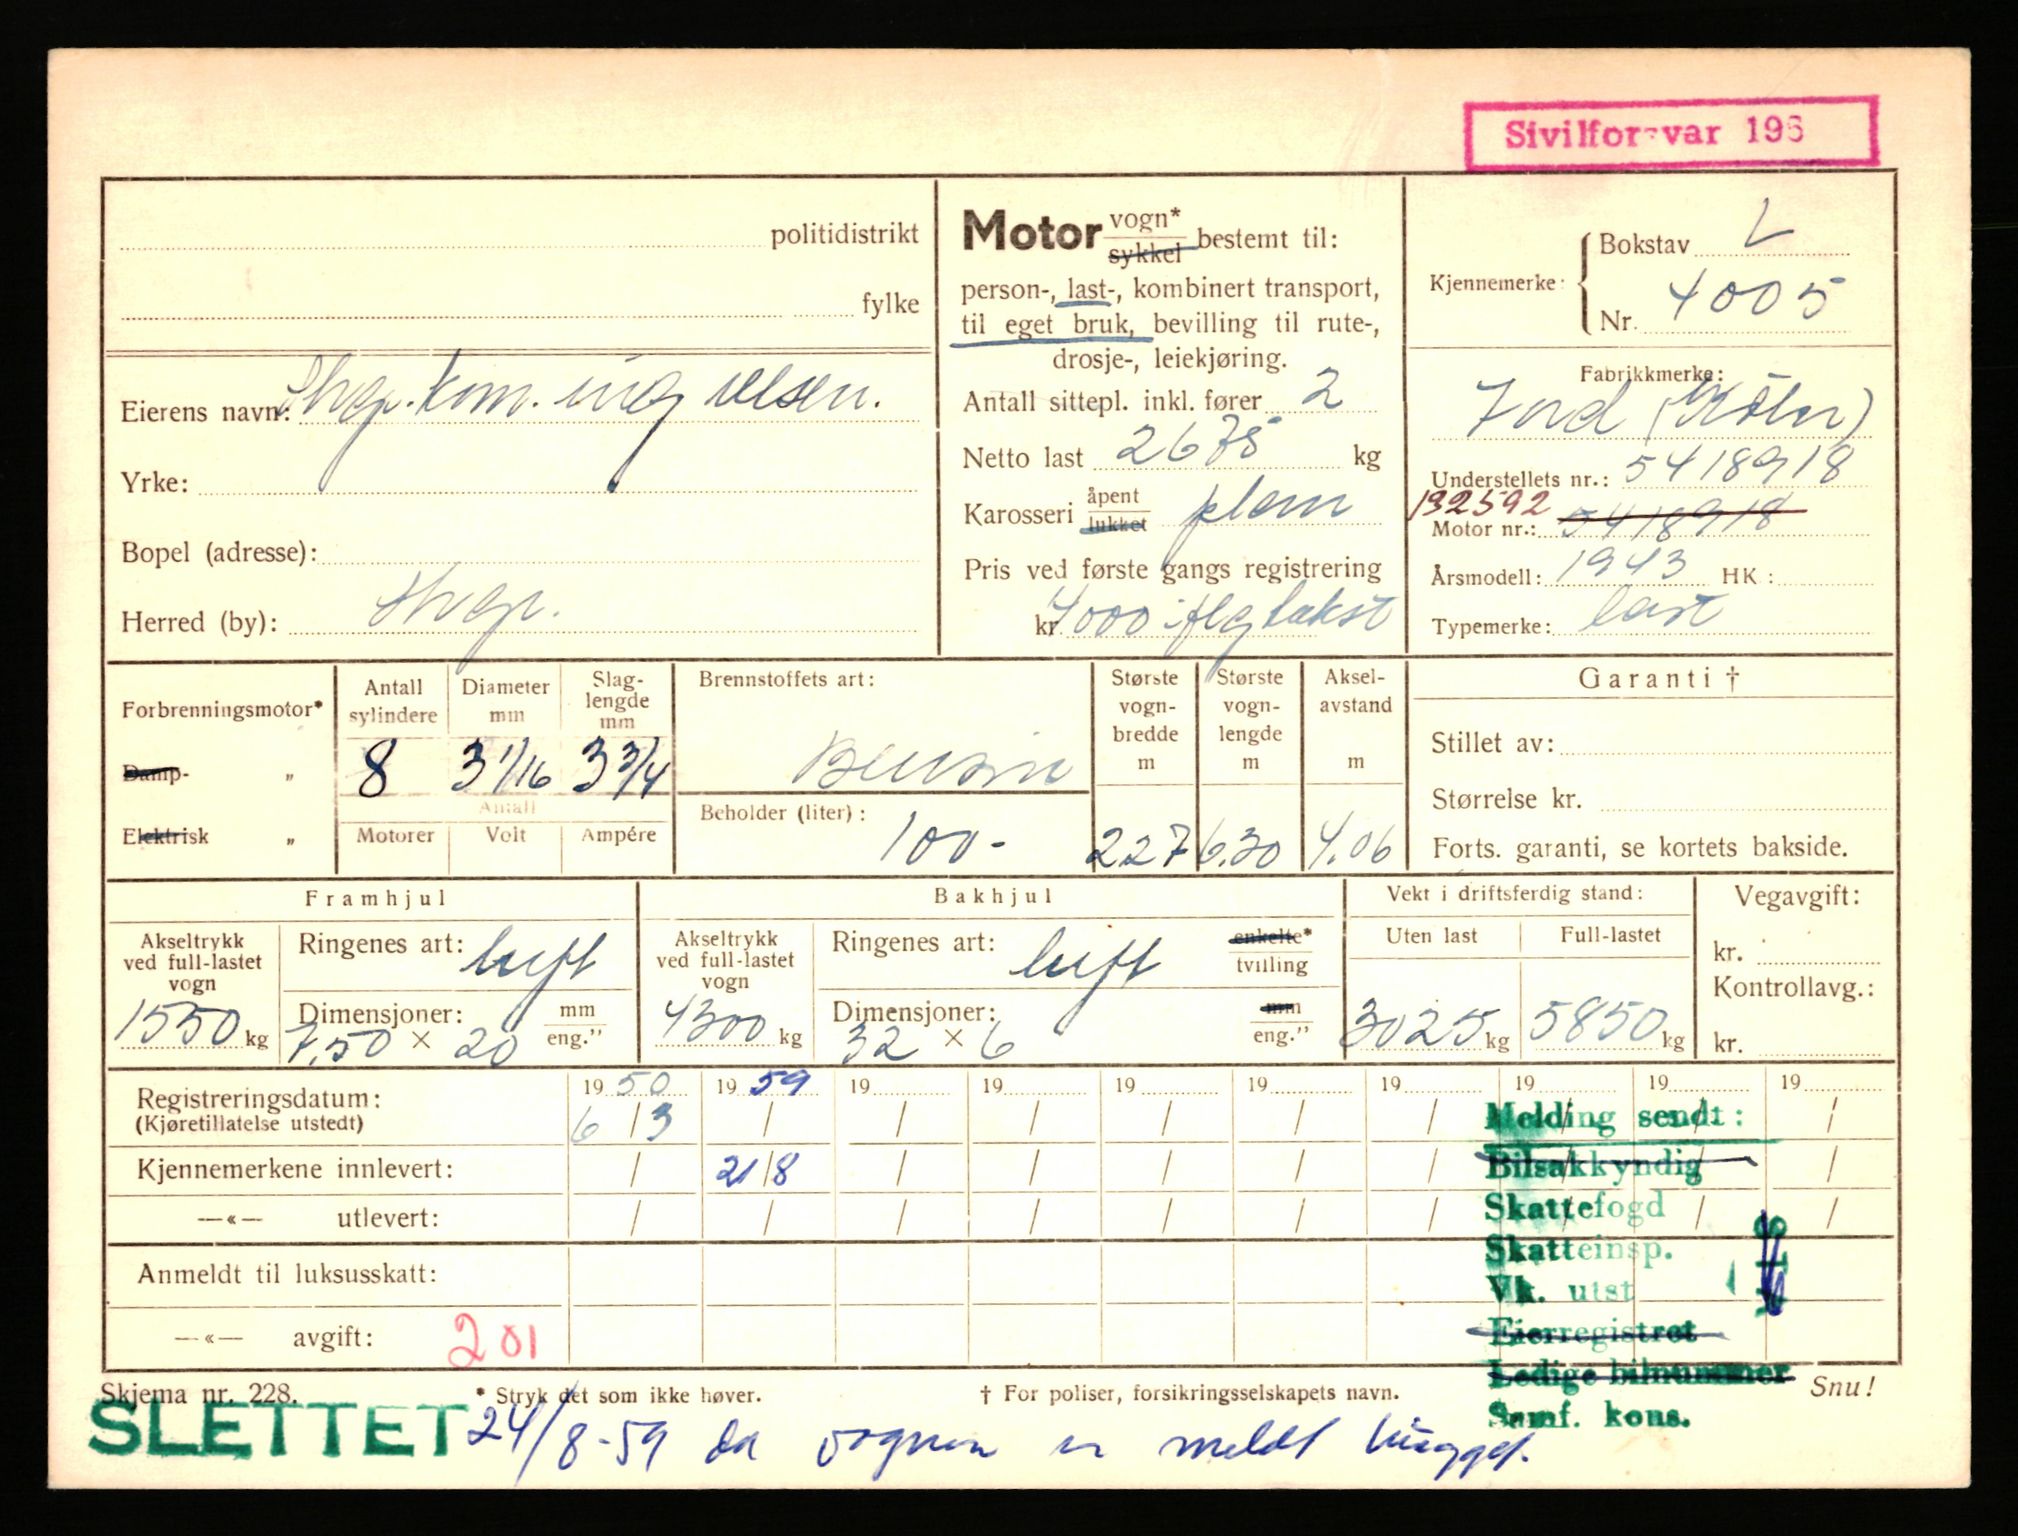 Sivilforsvar 196
politidistrikt
fylke
Eierens navn: Hvgr. kom. ing. vesen.
Yrke:
Bopel (adresse):
Herred (by): Hvgr.
Motor vogn* sykkel bestemt til:
person-, last-, kombinert transport,
til eget bruk, bevilling til rute-,
drosje-, leiekjøring.
Antall sittepl. inkl. fører 2
Netto last 2675 kg
Karosseri åpent lukket plan
Pris ved første gangs registrering
kr 4000 iflg takst
Kjennemerke:
Bokstav L
Nr. 4005
Fabrikkmerke:
Ford (Köln)
Understellets nr.: 5418918
192592
Motor nr.: 5418918
Årsmodell: 1943 HK:
Typemerke: last
Forbrenningsmotor*
Damp- „
Elektrisk „
Antall sylindere
8
Diameter mm
3 1/16
Slag-lengde mm
3 3/4
Antall
Motorer Volt Ampére
Brennstoffets art:
Bensin
Beholder (liter):
100-
Største vogn-bredde m
2.27
Største vogn-lengde m
6.30
Aksel-avstand m
4.06
Garanti †
Stillet av:
Størrelse kr.
Forts. garanti, se kortets bakside.
Framhjul
Akseltrykk ved full-lastet vogn
1550 kg
Ringenes art: luft
Dimensjoner: mm eng."
7.50 × 20
Bakhjul
Akseltrykk ved full-lastet vogn
4300 kg
Ringenes art: luft enkelte* tvilling
Dimensjoner: mm eng."
32 × 6
Vekt i driftsferdig stand:
Uten last Full-lastet
3025 kg 5850 kg
Vegavgift:
kr.
Kontrollavg.:
kr.
19 50 19 59 19 19 19 19 19 19 19 19
Registreringsdatum: 6/3 / / / / / / / / /
(Kjøretillatelse utstedt)
Kjennemerkene innlevert: / 21/8 / / / / / / / /
—«— utlevert: / / / / / / / / / /
Anmeldt til luksusskatt:
—«— avgift: 201
Melding sendt:
Bilsakkyndig
Skattefogd
Skatteinsp.
Vk. utst
Eierregistret
Ledige bilnummer
Samf. kons.
Skjema nr. 228.
* Stryk det som ikke høver.
† For poliser, forsikringsselskapets navn.
Snu!
SLETTET 24/8-59 da vognen er meldt hugget.